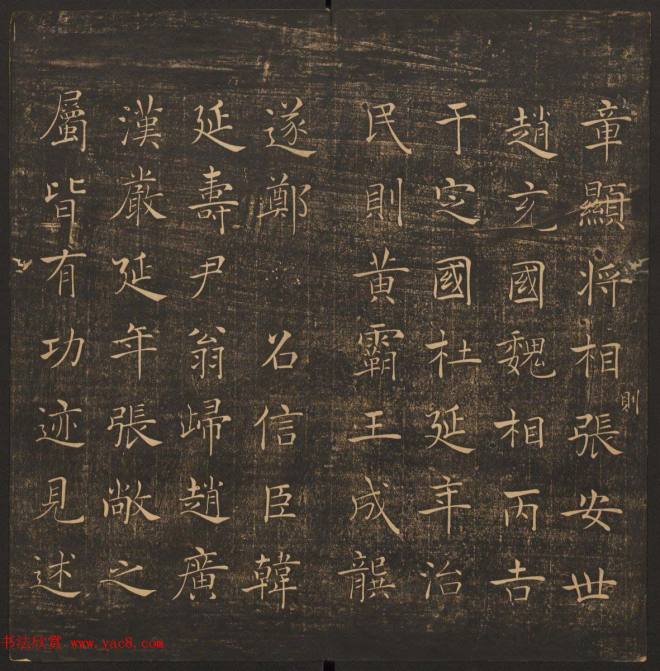 章顯将相張安世
則
趙充國魏相丙吉
于定國杜延年治
民則黃霸王成龔
遂鄭 召信臣韓
延壽尹翁歸趙廣
漢嚴延年張敞之
屬皆有功迹見述
书法欣赏 www.yac8.com